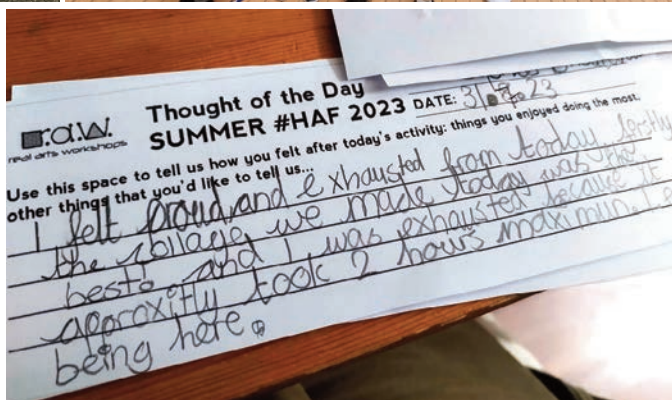 r.a.w.
real arts workshops
Thought of the Day
SUMMER #HAF 2023 DATE: 31.7.23
Use this space to tell us how you felt after today's activity: things you enjoyed doing the most.
other things that you'd like to tell us...
I felt proud and exhausted from today firstly
the collage we made today was the
best! and I was exhausted because it
approxitly took 2 hours maximun.
being here.